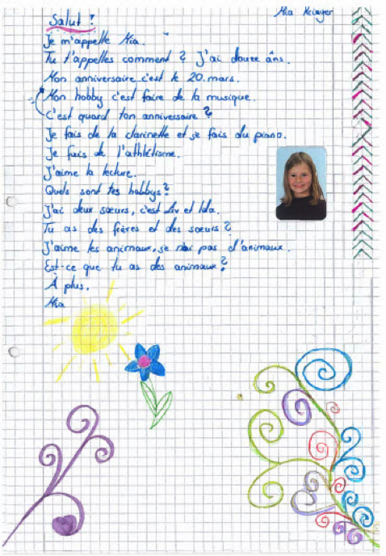 Mia Krieger
Salut!
Je m'appelle Mia.
Tu t'appelles comment? J'ai douze âns.
Mon anniversaire c'est le 20. mars.
Mon hobby c'est faire de la musique.
C'est quand ton anniversaire?
Je fais de la clarinette et je fais du piano.
Je fais de l'athlétisme.
J'aime la lecture.
Quels sont tes hobbys?
J'ai deux sœurs, c'est Liv et Ida.
Tu as des frères et des sœurs?
J'aime les animaux, je n'ai pas d'animaux.
Est-ce que tu as des animaux?
À plus.
Mia